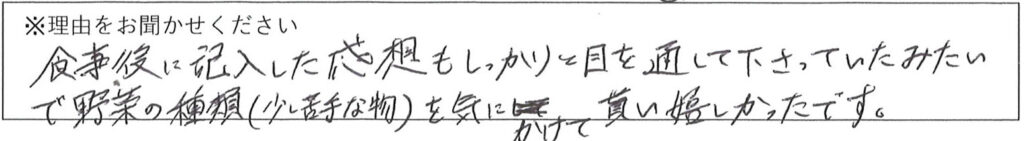 ※理由をお聞かせください
食事後に記入した感想もしっかりと目を通して下さっていたみたい
で野菜の種類(少し苦手な物)を気にかけて貰い嬉しかったです。